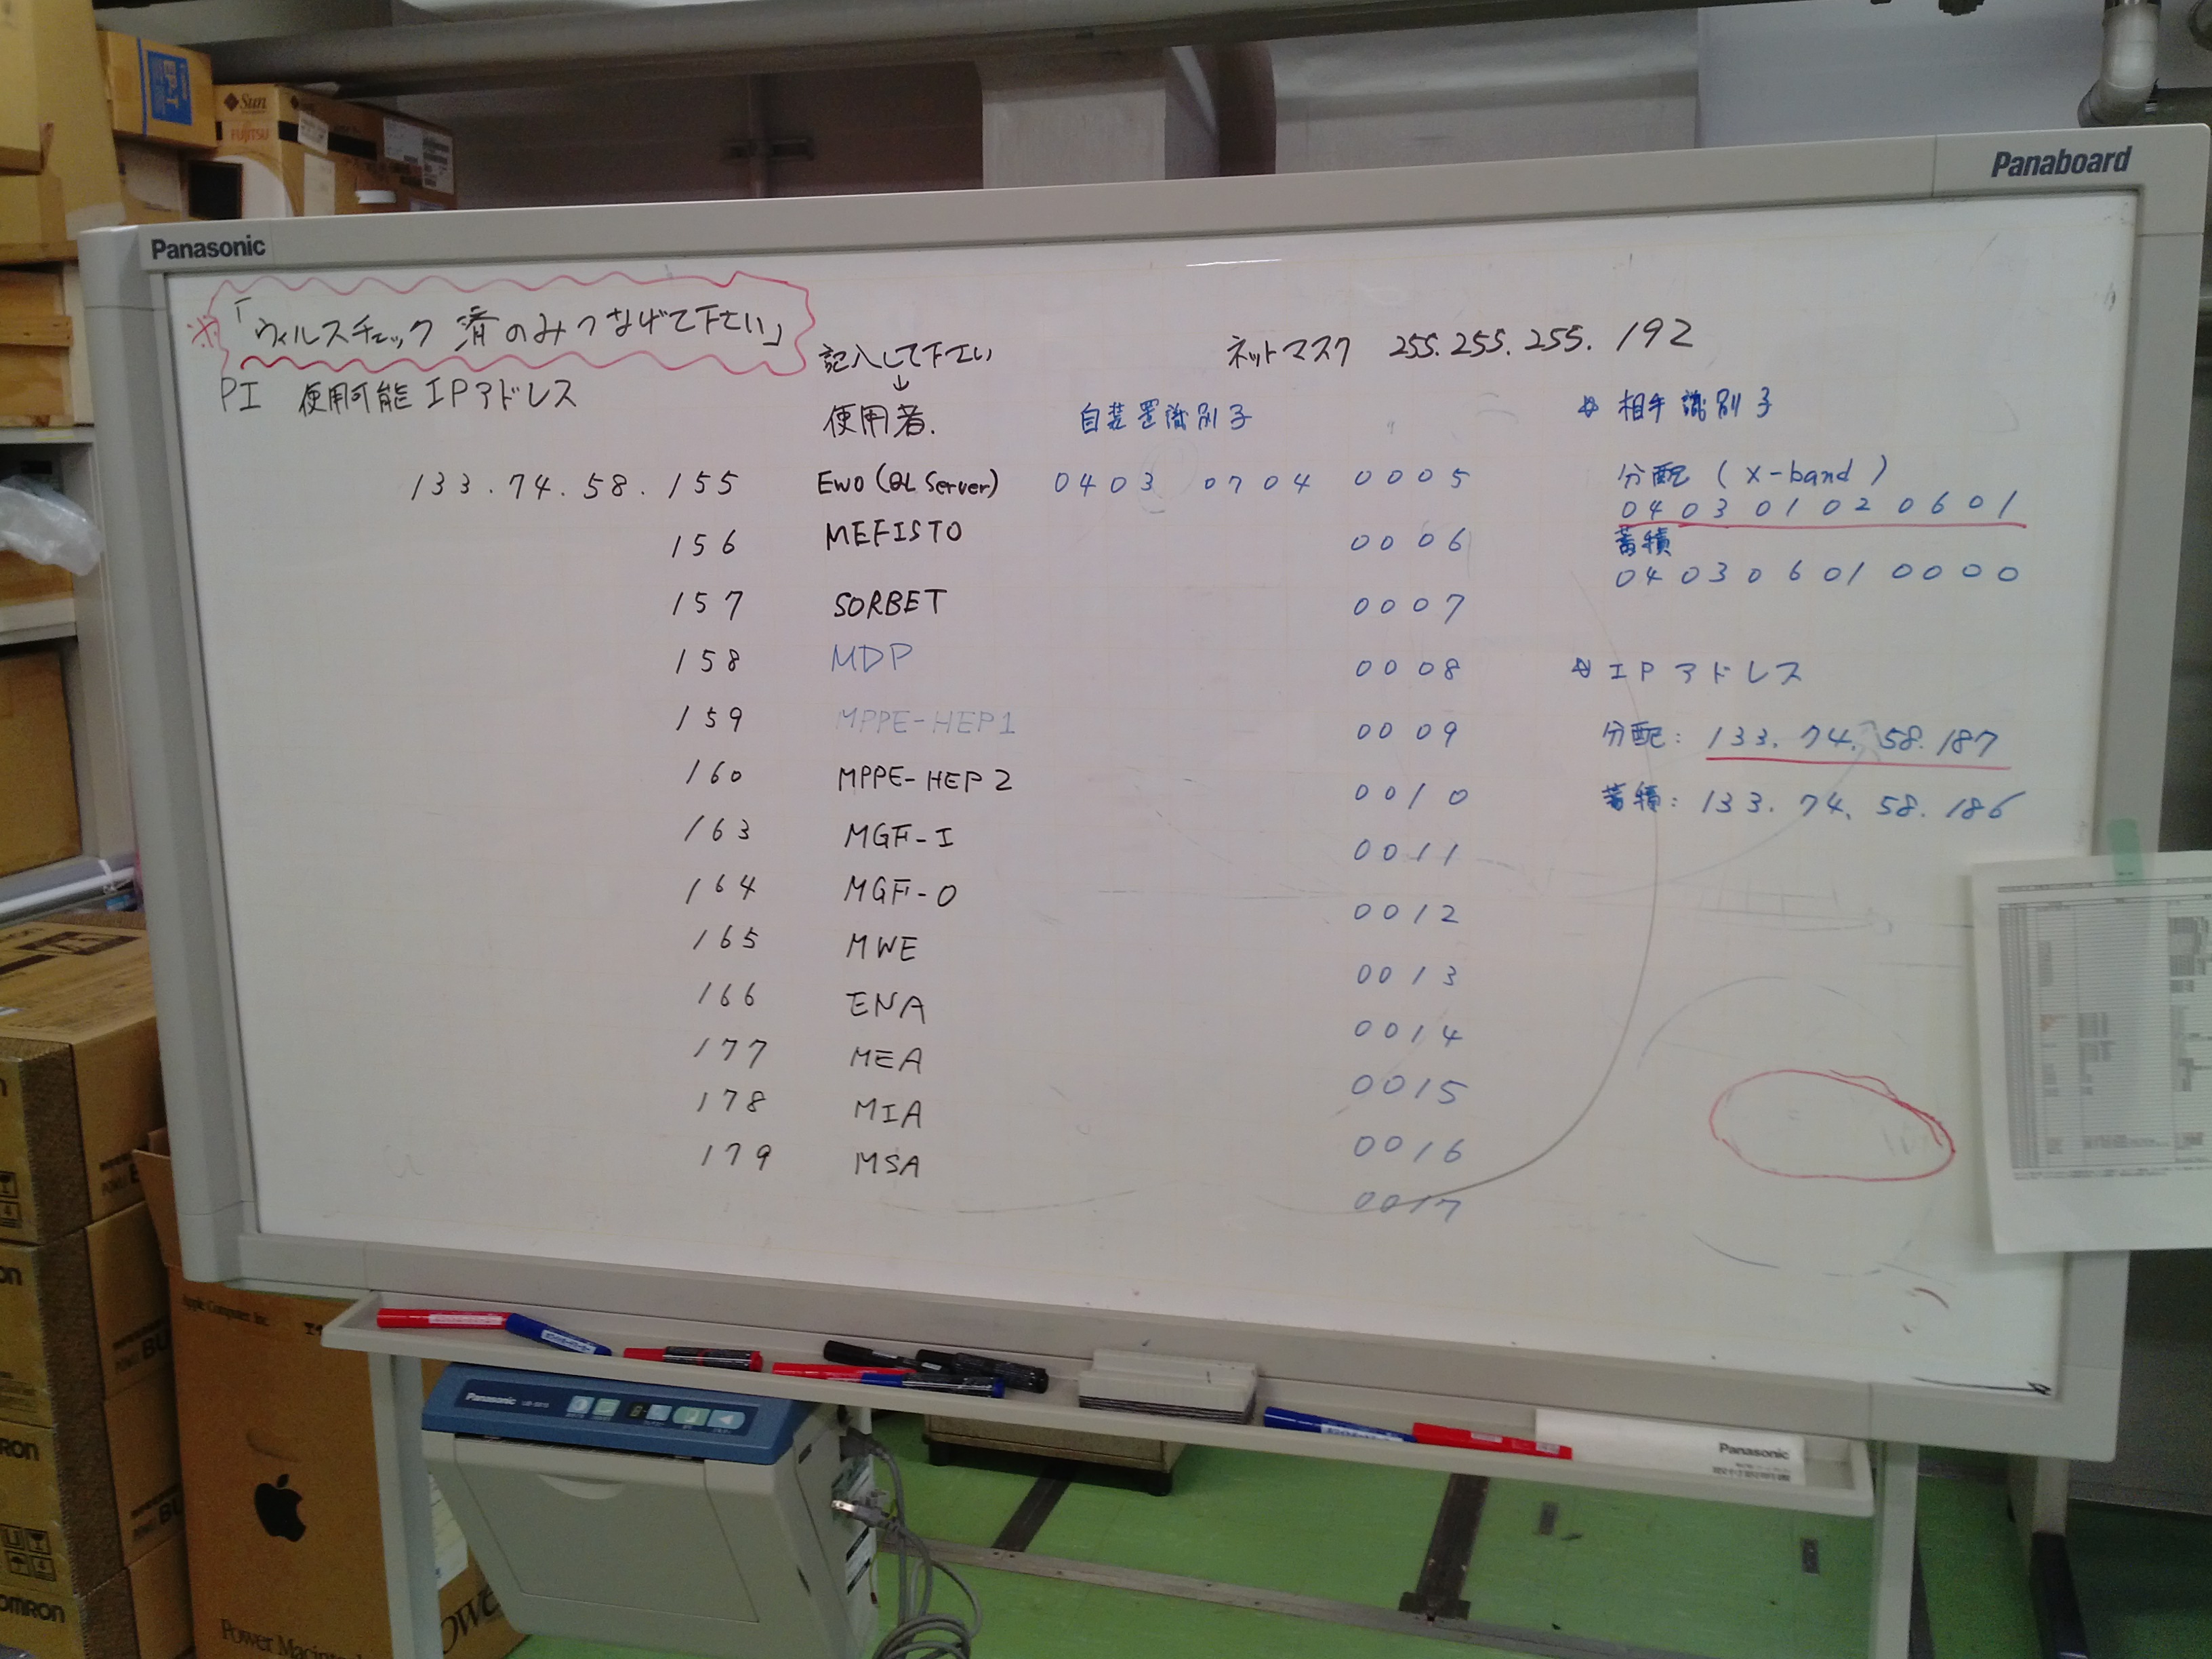 Sun
FUJITSU
Panaboard
Panasonic
※「ウィルスチェック 済のみつなげて下さい」
記入して下さい
↓
ネットマスク 255.255.255.192
PI 使用可能 IPアドレス
使用者.
自装置識別子
133.74.58.155 EWO (QL Server) 0403 0704 0005
156 MEFISTO 0006
157 SORBET 0007
158 MDP 0008
159 MPPE-HEP1 0009
160 MPPE-HEP2 0010
163 MGF-I 0011
164 MGF-O 0012
165 MWE 0013
166 ENA 0014
177 MEA 0015
178 MIA 0016
179 MSA 0017
☆ 相手識別子
分配 (X-band)
04 03 01 02 06 01
蓄積
04 03 06 01 00 00
☆ IPアドレス
分配: 133.74.58.187
蓄積: 133.74.58.186
Panasonic
Panasonic
Apple Computer Inc.
Power Macintosh
OMRON